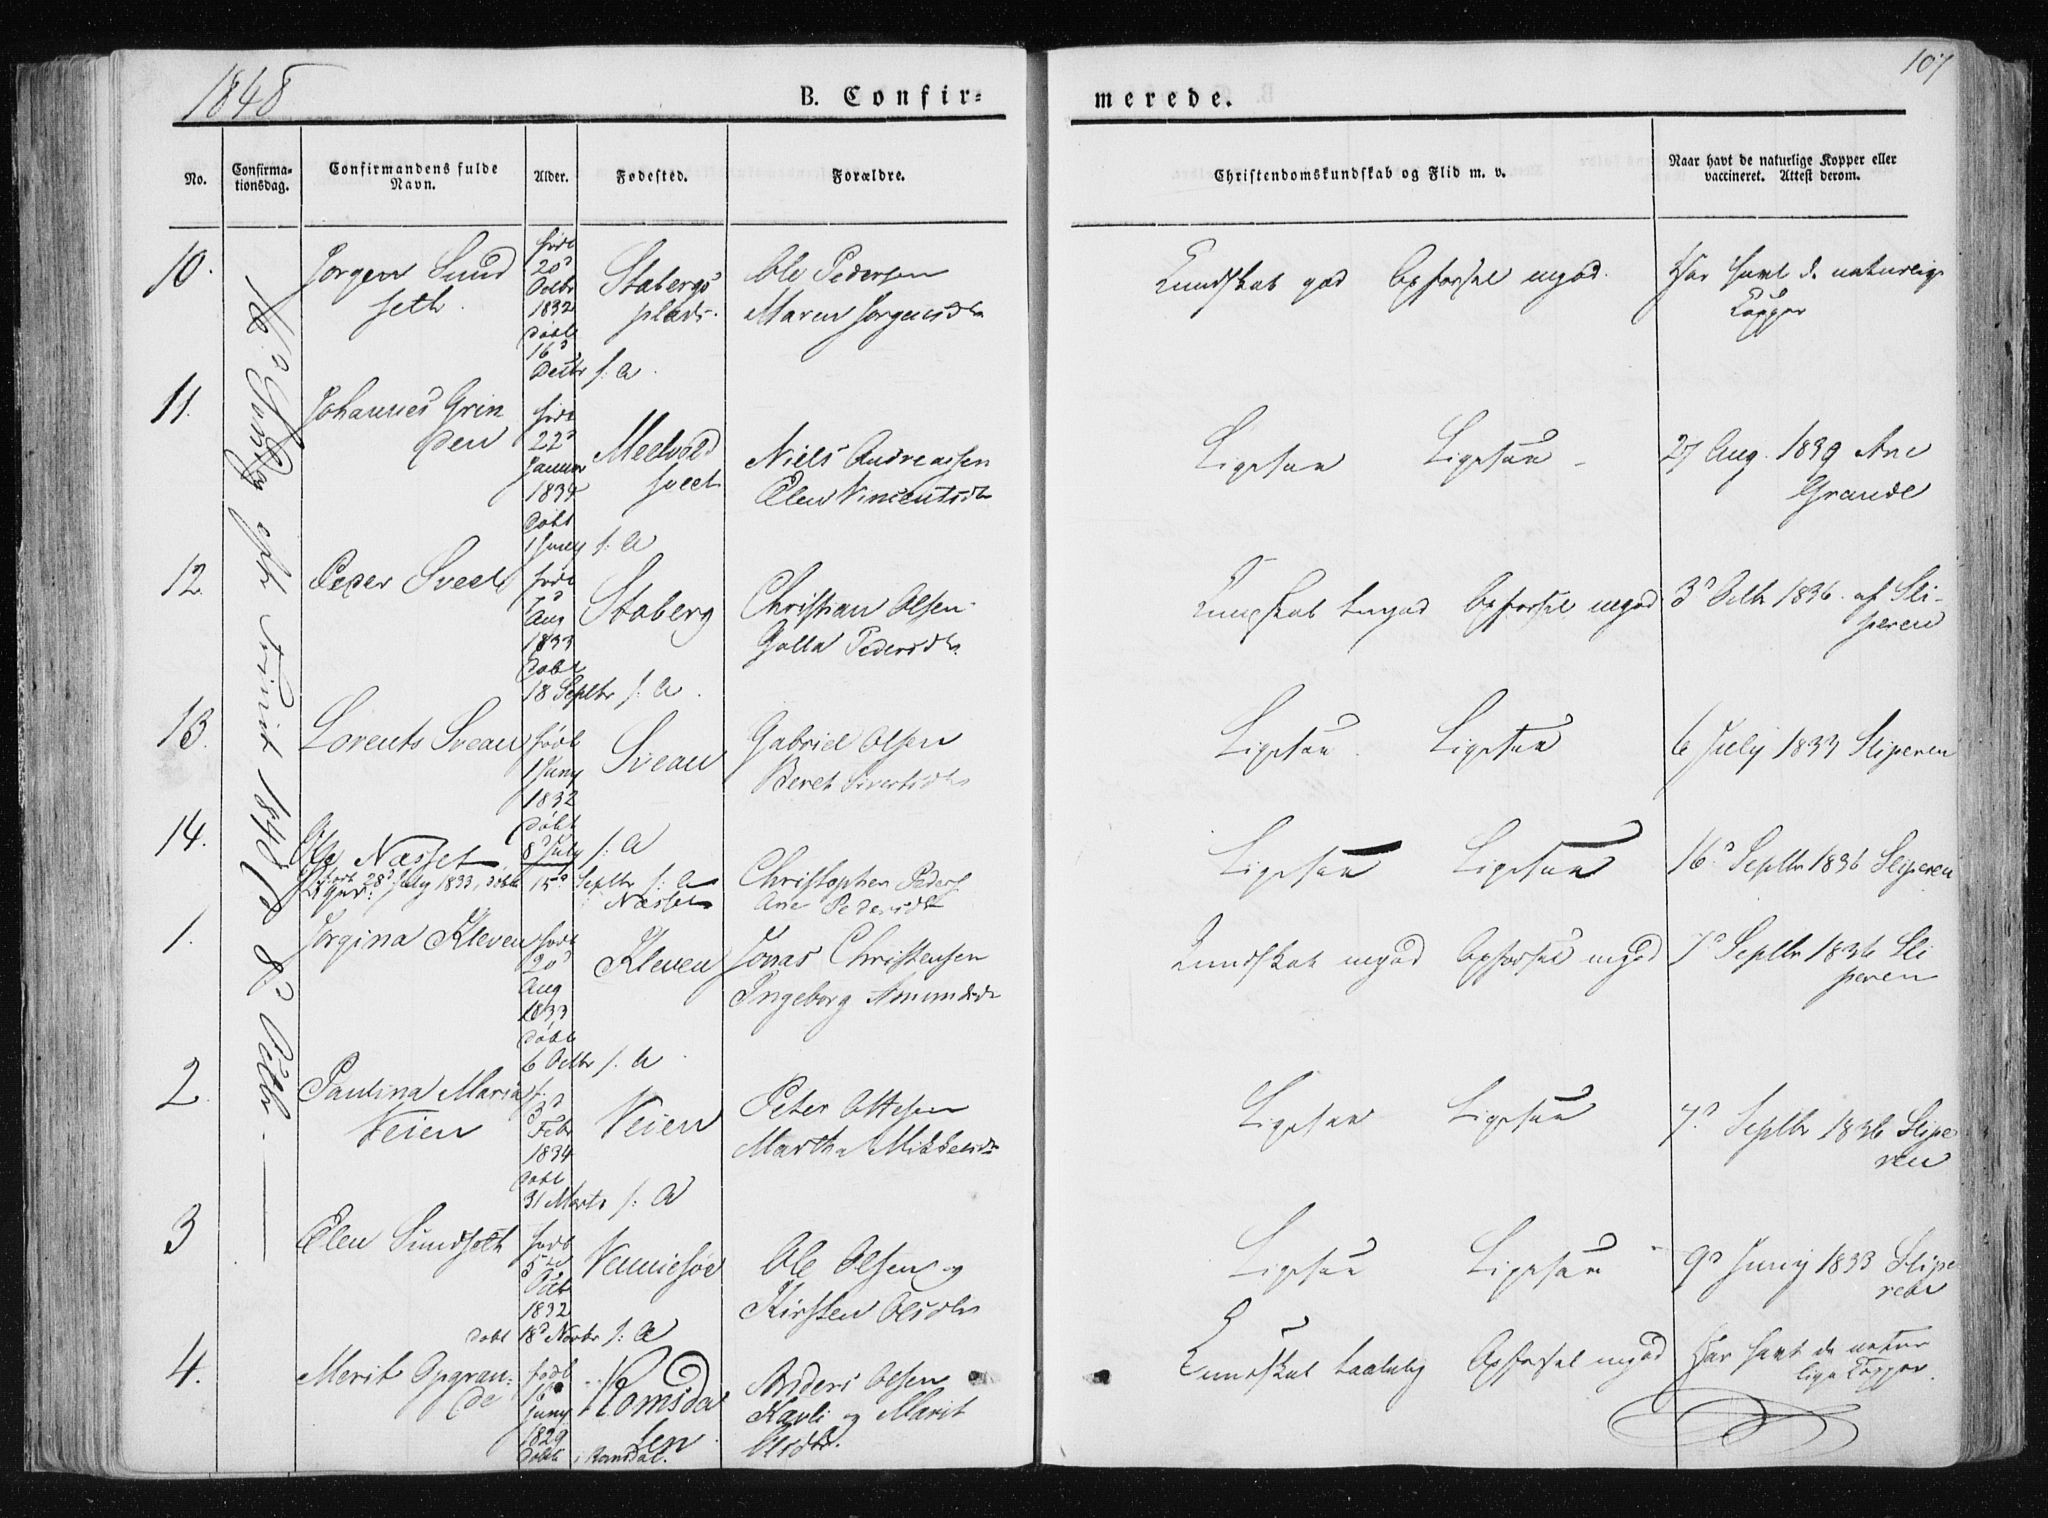 1848
B. Confir=
merede.
107
No.
Confirma-
tionsdag.
Confirmandens fulde
Navn.
Alder.
Fødested.
Forældre.
Christendomskundskab og Flid m. v.
Naar havt de naturlige Kopper eller
vaccineret. Attest derom.
16d Søndag eft Trinit 1848 d 8d Octbr.
10.
Jørgen Sund
seth.
født
20d
Octbr
1832
døbt
16d
Decbr s: A.
Stabergs
plads.
Ole Pedersen
Maren Jørgensdtr
Kundskab god Opførsel mgod.
Har havt de naturlige
Kopper
11.
Johannes Grin
den
født
22d
Januar
1834
Døbt
1 Juny s: A
Meelvold
sveet
Niels Andreassen
Elen Vincentsdtr
Ligesaa Ligesaa
27 Aug. 1839 Ane
Grande
12.
Peder Sveet
født
7d
Aug
1833
Døbt
18 Septbr s: A.
Staberg
Christian Olsen
Golla Pedersdtr.
Kundskab temgod Opførsel mgod
3d Octbr 1836. af Sli-
peren
13.
Lorents Svean
født
1 Juny
1832
døbt
8d July s: A
Svean
Gabriel Olsen
Beret Sivertsdtr
Ligesaa Ligesaa
6 July 1833 Sliperen
14.
Ole Næsset
født 28d July 1833, døbt 15d Septbr s: A
Næsset
Christopher Peders
Ane Pedersdtr
Ligesaa Ligesaa
16d Septbr 1836 Sliperen
1.
Jørgina Kleven
født
20d
Aug
1833
Døbt
6 Octbr s: A.
Kleven
Jonas Christensen
Ingeborg Amundsdtr
Kundskab mgod Opførsel mgod
7d Septbr 1836 Sli
peren
2.
Paulina Maria
Veien
f.
3d
Febr
1834
Døbt
31 Marts s: A
Veien
Peter Ottesen
Martha Mikkelsdtr
Ligesaa Ligesaa
7d Septbr 1836 Slipe
ren
3
Elen Sundseth
født
5te
Octbr
1832
døbt 18d Novbr s: A
Vennesøe
Ole Olsen og
Kirsten Olsdtr
Ligesaa Ligesaa
9d Juny 1833 Slipe
4.
Merit Opgran-
de
født
Juny
1829
Døbt i Romsdal.
Romsda
len
Anders Olsen
Kavli og Marit
Olsdtr.
Kundskab taalelig Opførsel mgod
Har havt de natur
lige Kopper.